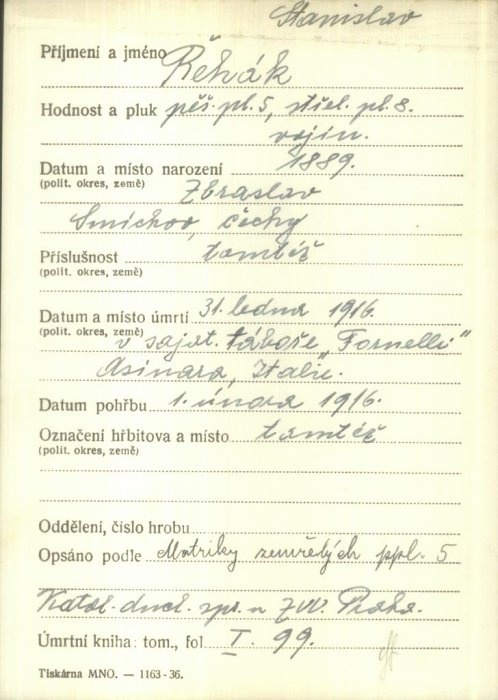 Stanislav
Příjmení a jméno Řehák
Hodnost a pluk pěš. pl. 5, střel. pl. 8.
vojín.
Datum a místo narození 1889.
(polit. okres, země) Zbraslav
Smíchov, Čechy
Příslušnost tamtéž
(polit. okres, země)
Datum a místo úmrtí 31. ledna 1916.
(polit. okres, země) v zajat. táboře "Fornelli"
Asinara, Italie.
Datum pohřbu 1. února 1916.
Označení hřbitova a místo tamtéž
(polit. okres, země)
Oddělení, číslo hrobu
Opsáno podle Matriky zemřelých ppl. 5
Katol. duch. spr. u ZVV. Praha.
Úmrtní kniha: tom., fol I. 99.
Tiskárna MNO. — 1163-36.